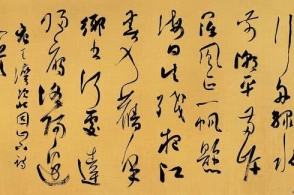 行舟綠水
前潮平兩岸
闊風正一帆懸
海日生殘夜江
春入舊年
鄉書何處達
歸雁洛陽邊
王灣次北固山下詩